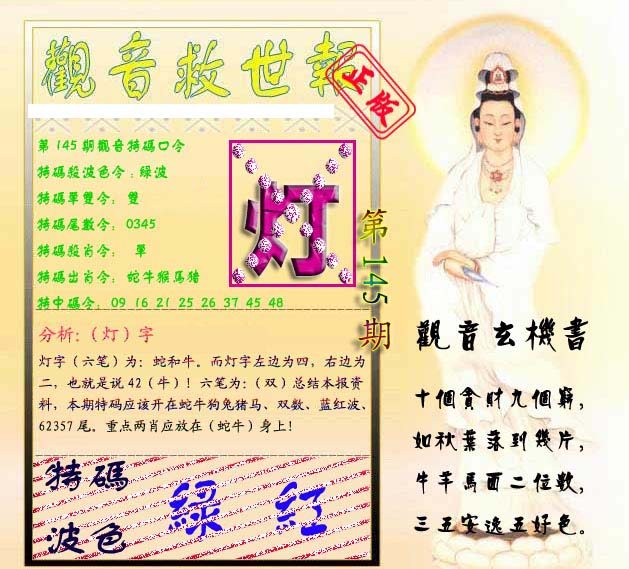 觀音救世報
正版
第145期觀音特碼口令
特碼殺波色令:綠波
特碼單雙令: 雙
特碼尾數令: 0345
特碼殺肖令: 單
特碼出肖令: 蛇牛猴馬猪
特中碼令: 09 16 21 25 26 37 45 48
灯
第145期
分析:（灯）字
灯字（六笔）为：蛇和牛。而灯字左边为四，右边为
二，也就是说42（牛）！六笔为：（双）总结本报资
料，本期特码应该开在蛇牛狗兔猪马、双数、蓝红波、
62357尾。重点两肖应放在（蛇牛）身上！
特碼
波色
綠 紅
觀音玄機書
十個貪財九個窮，
如秋葉落到幾片，
牛羊馬面二位數，
三五安逸五好色。